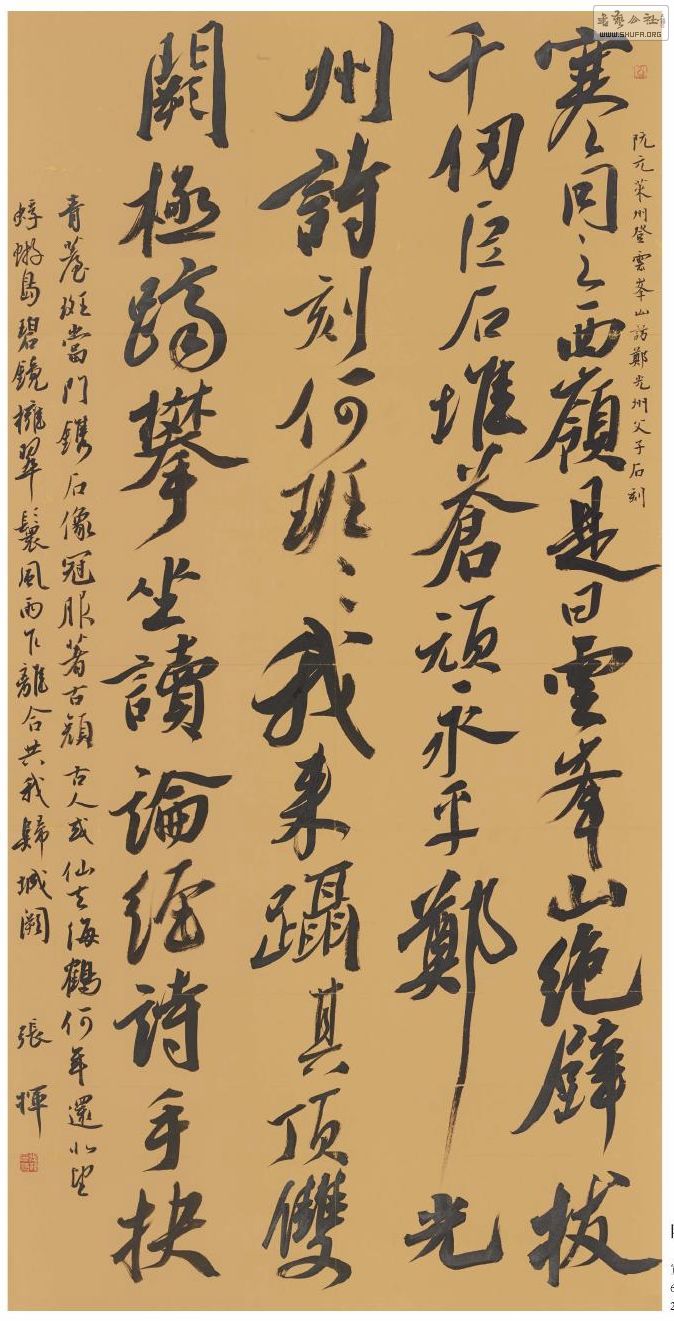 書藝公社
WWW.SHUFA.ORG
阮元萊州登雲峯山訪鄭光州父子石刻
寒同之西嶺是曰雲峯山絶壁拔
千仞巨石堆蒼頑永平鄭光
州詩刻何斑〻我来躡其頂雙
闕極躋攀坐讀論經詩手抉
青斑當門鐫石像冠服著古顔古人或仙去海鶴何年還北望
蜉蝣島碧鏡擁翠鬟風雨乍離合共我歸城闕 張揮